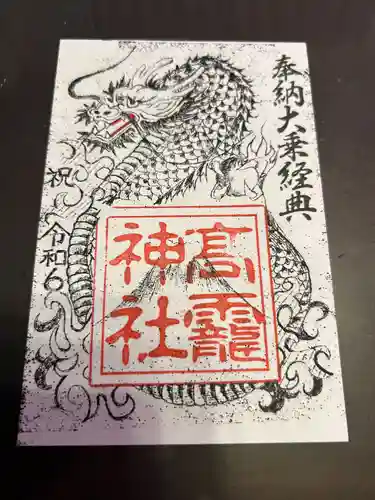 奉納大乗経典
高龗
神社
祝 令和6